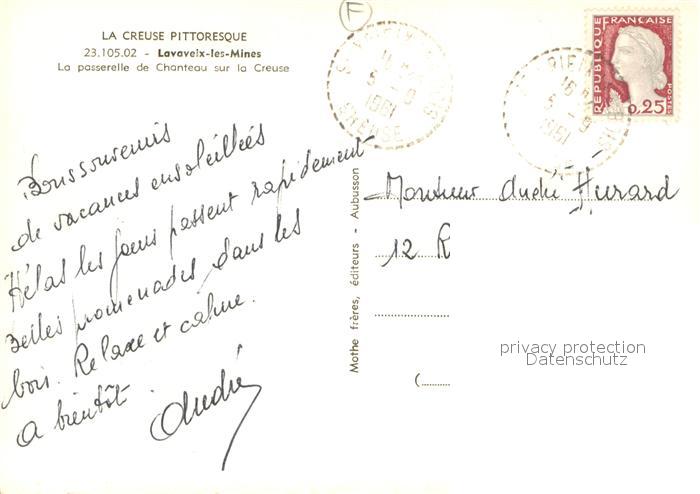 LA CREUSE PITTORESQUE
23.105.02 - Lavaveix-les-Mines
La passerelle de Chanteau sur la Creuse
F
5 - 9
1961
CREUSE
REPUBLIQUE FRANÇAISE
POSTES
0,25
16
5 - 9
1961
Bons souvenirs
de vacances ensoleillées
Hélas les jours passent rapidement
Belles promenades dans les
bois. Relaxe et calme.
A bientôt.
André
Mothe frères, éditeurs - Aubusson
Monsieur André Hurard
12 R
(
privacy protection
Datenschutz